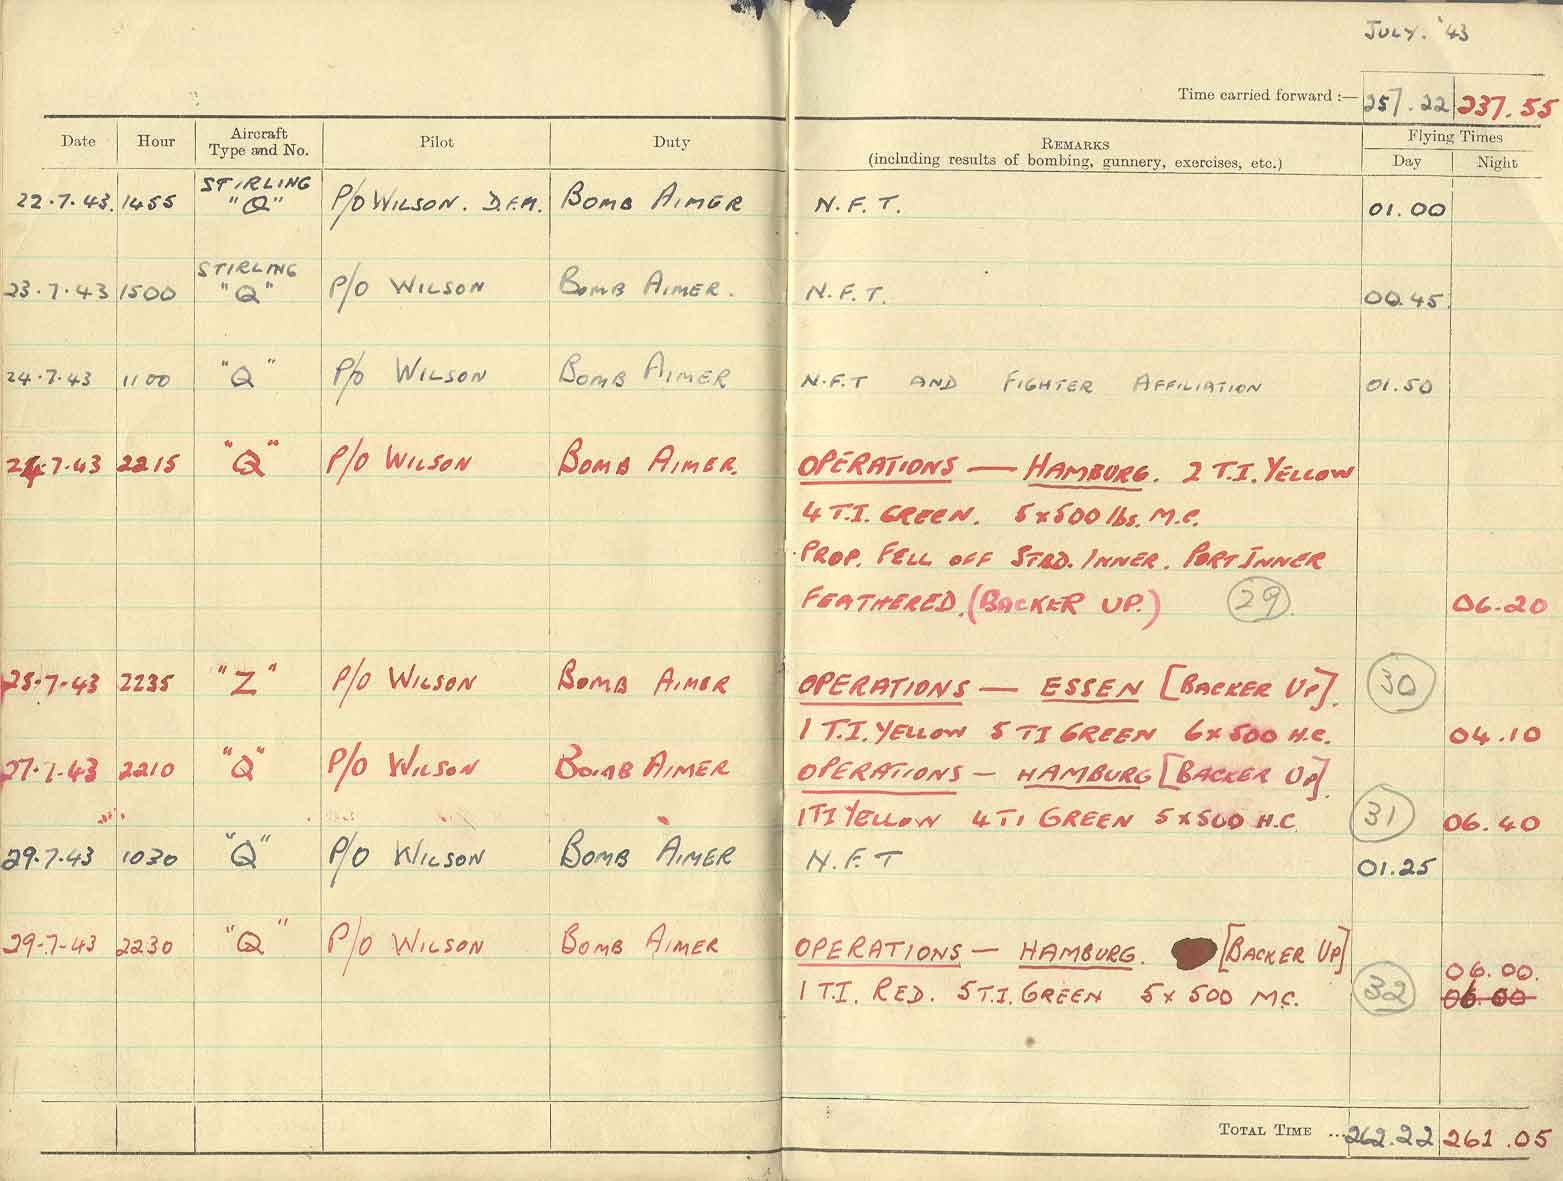 JULY. '43
Time carried forward :— 257.22 237.55
Date Hour Aircraft Type and No. Pilot Duty REMARKS (including results of bombing, gunnery, exercises, etc.) Flying Times
Day Night
STIRLING
22.7.43. 1455 "Q" P/O WILSON. D.F.M. BOMB AIMER N.F.T. 01.00
STIRLING
23.7.43 1500 "Q" P/O WILSON BOMB AIMER. N.F.T. 00.45
24.7.43 1100 "Q" P/O WILSON BOMB AIMER N.F.T AND FIGHTER AFFILIATION 01.50
24.7.43 2215 "Q" P/O WILSON BOMB AIMER. OPERATIONS — HAMBURG. 2 T.I. YELLOW
4 T.I. GREEN. 5x500 lbs. M.C.
PROP. FELL OFF STBD. INNER. PORT INNER
FEATHERED. (BACKER UP.) 29 06.20
25.7.43 2235 "Z" P/O WILSON BOMB AIMER OPERATIONS — ESSEN [BACKER UP]. 30
1 T.I. YELLOW 5 TI GREEN 6x500 H.C. 04.10
27.7.43 2210 "Q" P/O WILSON BOMB AIMER OPERATIONS — HAMBURG [BACKER UP].
1 TI YELLOW 4 TI GREEN 5x500 H.C 31 06.40
29.7.43 1030 "Q" P/O WILSON BOMB AIMER N.F.T 01.25
29.7.43 2230 "Q" P/O WILSON BOMB AIMER OPERATIONS — HAMBURG. [BACKER UP]
06.00.
1 T.I. RED. 5 T.I. GREEN 5x500 M.C. 32 06.00
TOTAL TIME ... 262.22 261.05